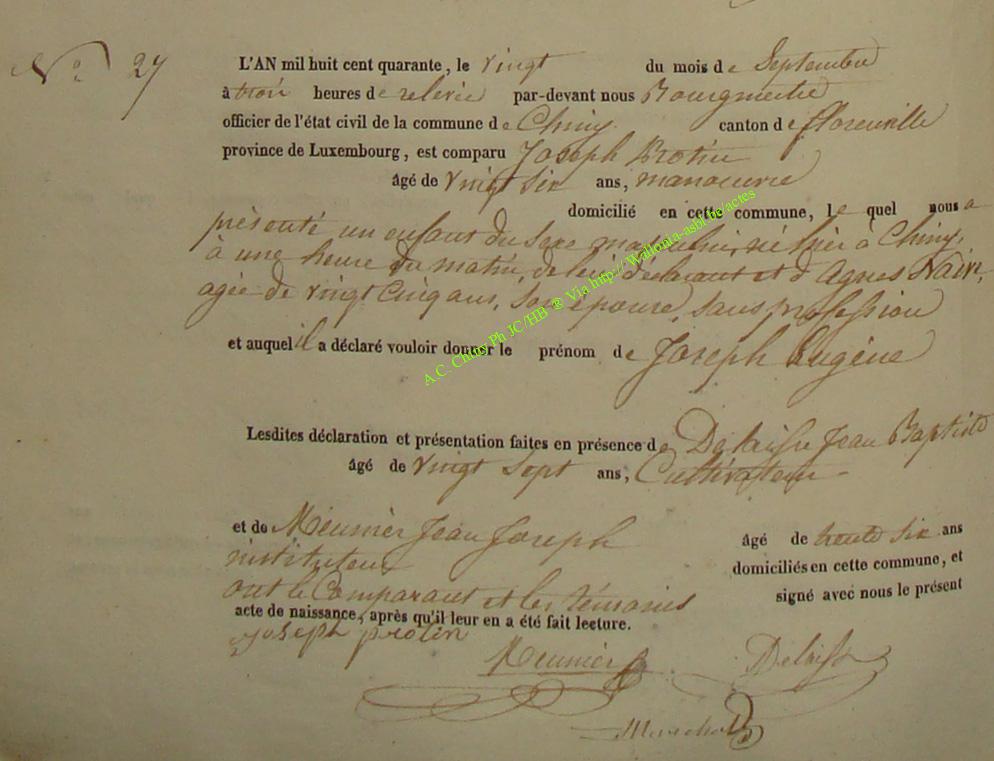 N° 27
L'AN mil huit cent quarante, le vingt du mois de Septembre
à trois heures de relevée par-devant nous Bourgmestre
officier de l'état civil de la commune de Chiny canton de florenville
province de Luxembourg, est comparu Joseph Protin
âgé de vingt six ans, manoeuvre
domicilié en cette commune, le quel nous a
présenté un enfant du sexe masculin, né hier à Chiny,
à une heure du matin, de lui déclarant et d'Agnes
agée de vingt cinq ans, son épouse, sans profession
et auquel il a déclaré vouloir donner le prénom de Joseph Eugène
Lesdites déclaration et présentation faites en présence de Delaisse Jean Baptiste
âgé de vingt sept ans, Cultivateur
et de Meunier Jean Joseph âgé de trente six ans
instituteur domiciliés en cette commune, et
ont le Comparant et les témoins signé avec nous le présent
acte de naissance, après qu'il leur en a été fait lecture.
Joseph protin
Meunier Delaisse
A.C. Chiny Ph JC/HB ® Via http://Wallonia-asbl.be/actes